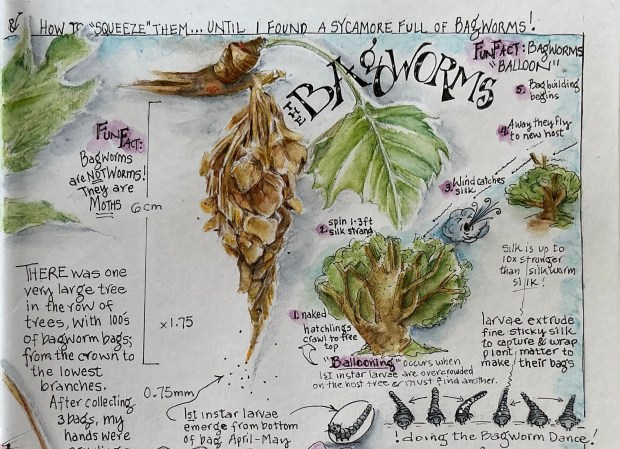 & HOW TO "SQUEEZE" THEM... UNTIL I FOUND A SYCAMORE FULL OF BAGWORMS!
THE BAGWORMS
FUN FACT: BAGWORMS
"BALLOON"
5. Bag building
begins
4. Away they fly
to new host
3. Wind catches
silk
2. spin 1-3ft
silk strand
1. naked
hatchlings
crawl to tree
top
"Ballooning" occurs when
1st instar larvae are overcrowded
on the host tree & must find another.
FUN FACT:
Bagworms
are NOT WORMS!
They are
MOTHS
6cm
x1.75
0.75mm
THERE was one
very large tree
in the row of
trees, with 100's
of bagworm bags;
from the crown to
the lowest
branches.
After collecting
3 bags, my
hands were
1st instar larvae
emerge from bottom
of bag April-May
Silk is up to
10x stronger
than silkworm
silk!
larvae extrude
fine sticky silk
to capture & wrap
plant matter to
make their bags
! doing the Bagworm Dance!